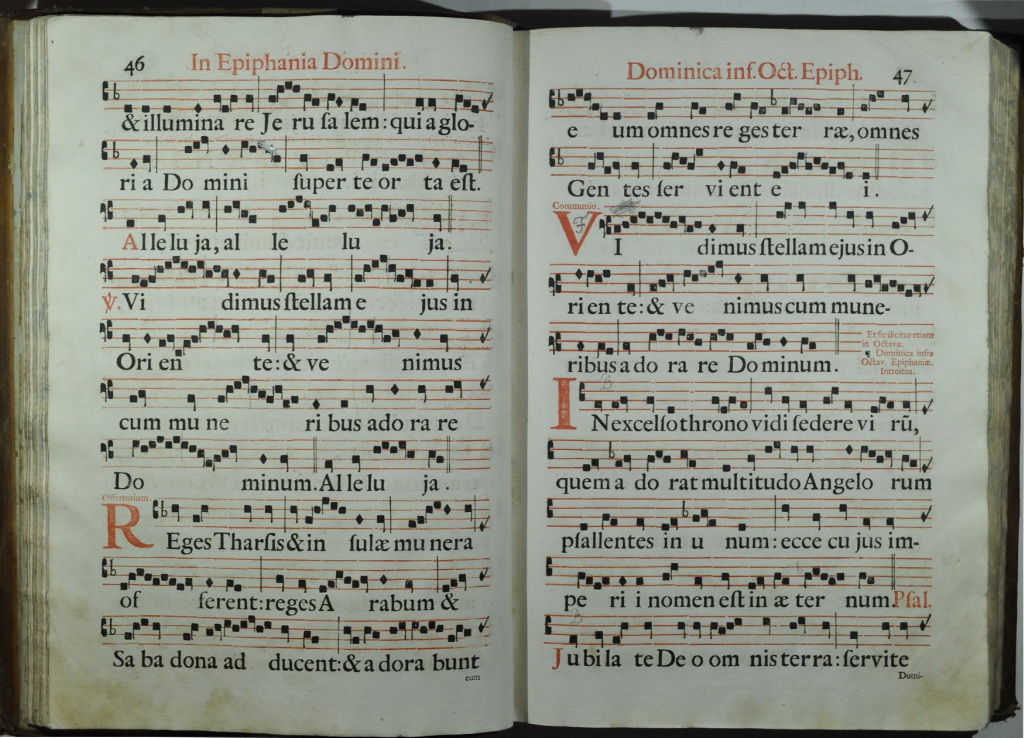 46
In Epiphania Domini.
& illumina re Je ru ſa lem: qui a glo-
ri a Do mini ſuper te or ta eſt.
Alle lu ja, al le lu ja.
℣. Vi dimus ſtellam e jus in
Ori en te: & ve nimus
cum mu ne ri bus ado ra re
Do minum. Al le lu ja.
Offertorium
REges Tharſis & in ſulæ mu nera
of ferent: reges A rabum &
Sa ba dona ad ducent: & a dora bunt
eum
Dominica inf. Oct. Epiph.
47
e um omnes re ges ter ræ, omnes
Gen tes ſer vi ent e i.
Communio.
VI dimus ſtellam ejus in O-
ri en te: & ve nimus cum mune-
ribus a do ra re Dominum.
Et ſic dicitur etiam
in Octava.
¶ Dominica infra
Octav. Epiphaniæ.
Introitus.
IN excelſo throno vidi ſedere vi rũ,
quem a do rat multitudo Angelo rum
pſallentes in u num: ecce cu jus im-
pe ri i nomen eſt in æ ter num. Pſal.
Ju bi la te De o om nis terra: ſervite
Domi-